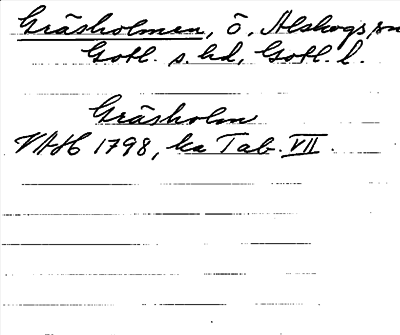 Gräsholmen, ö. Alskogs sn
Gotl. s. hd, Gotl. l.
Gräsholm
VAH 1798, ka Tab. VII.